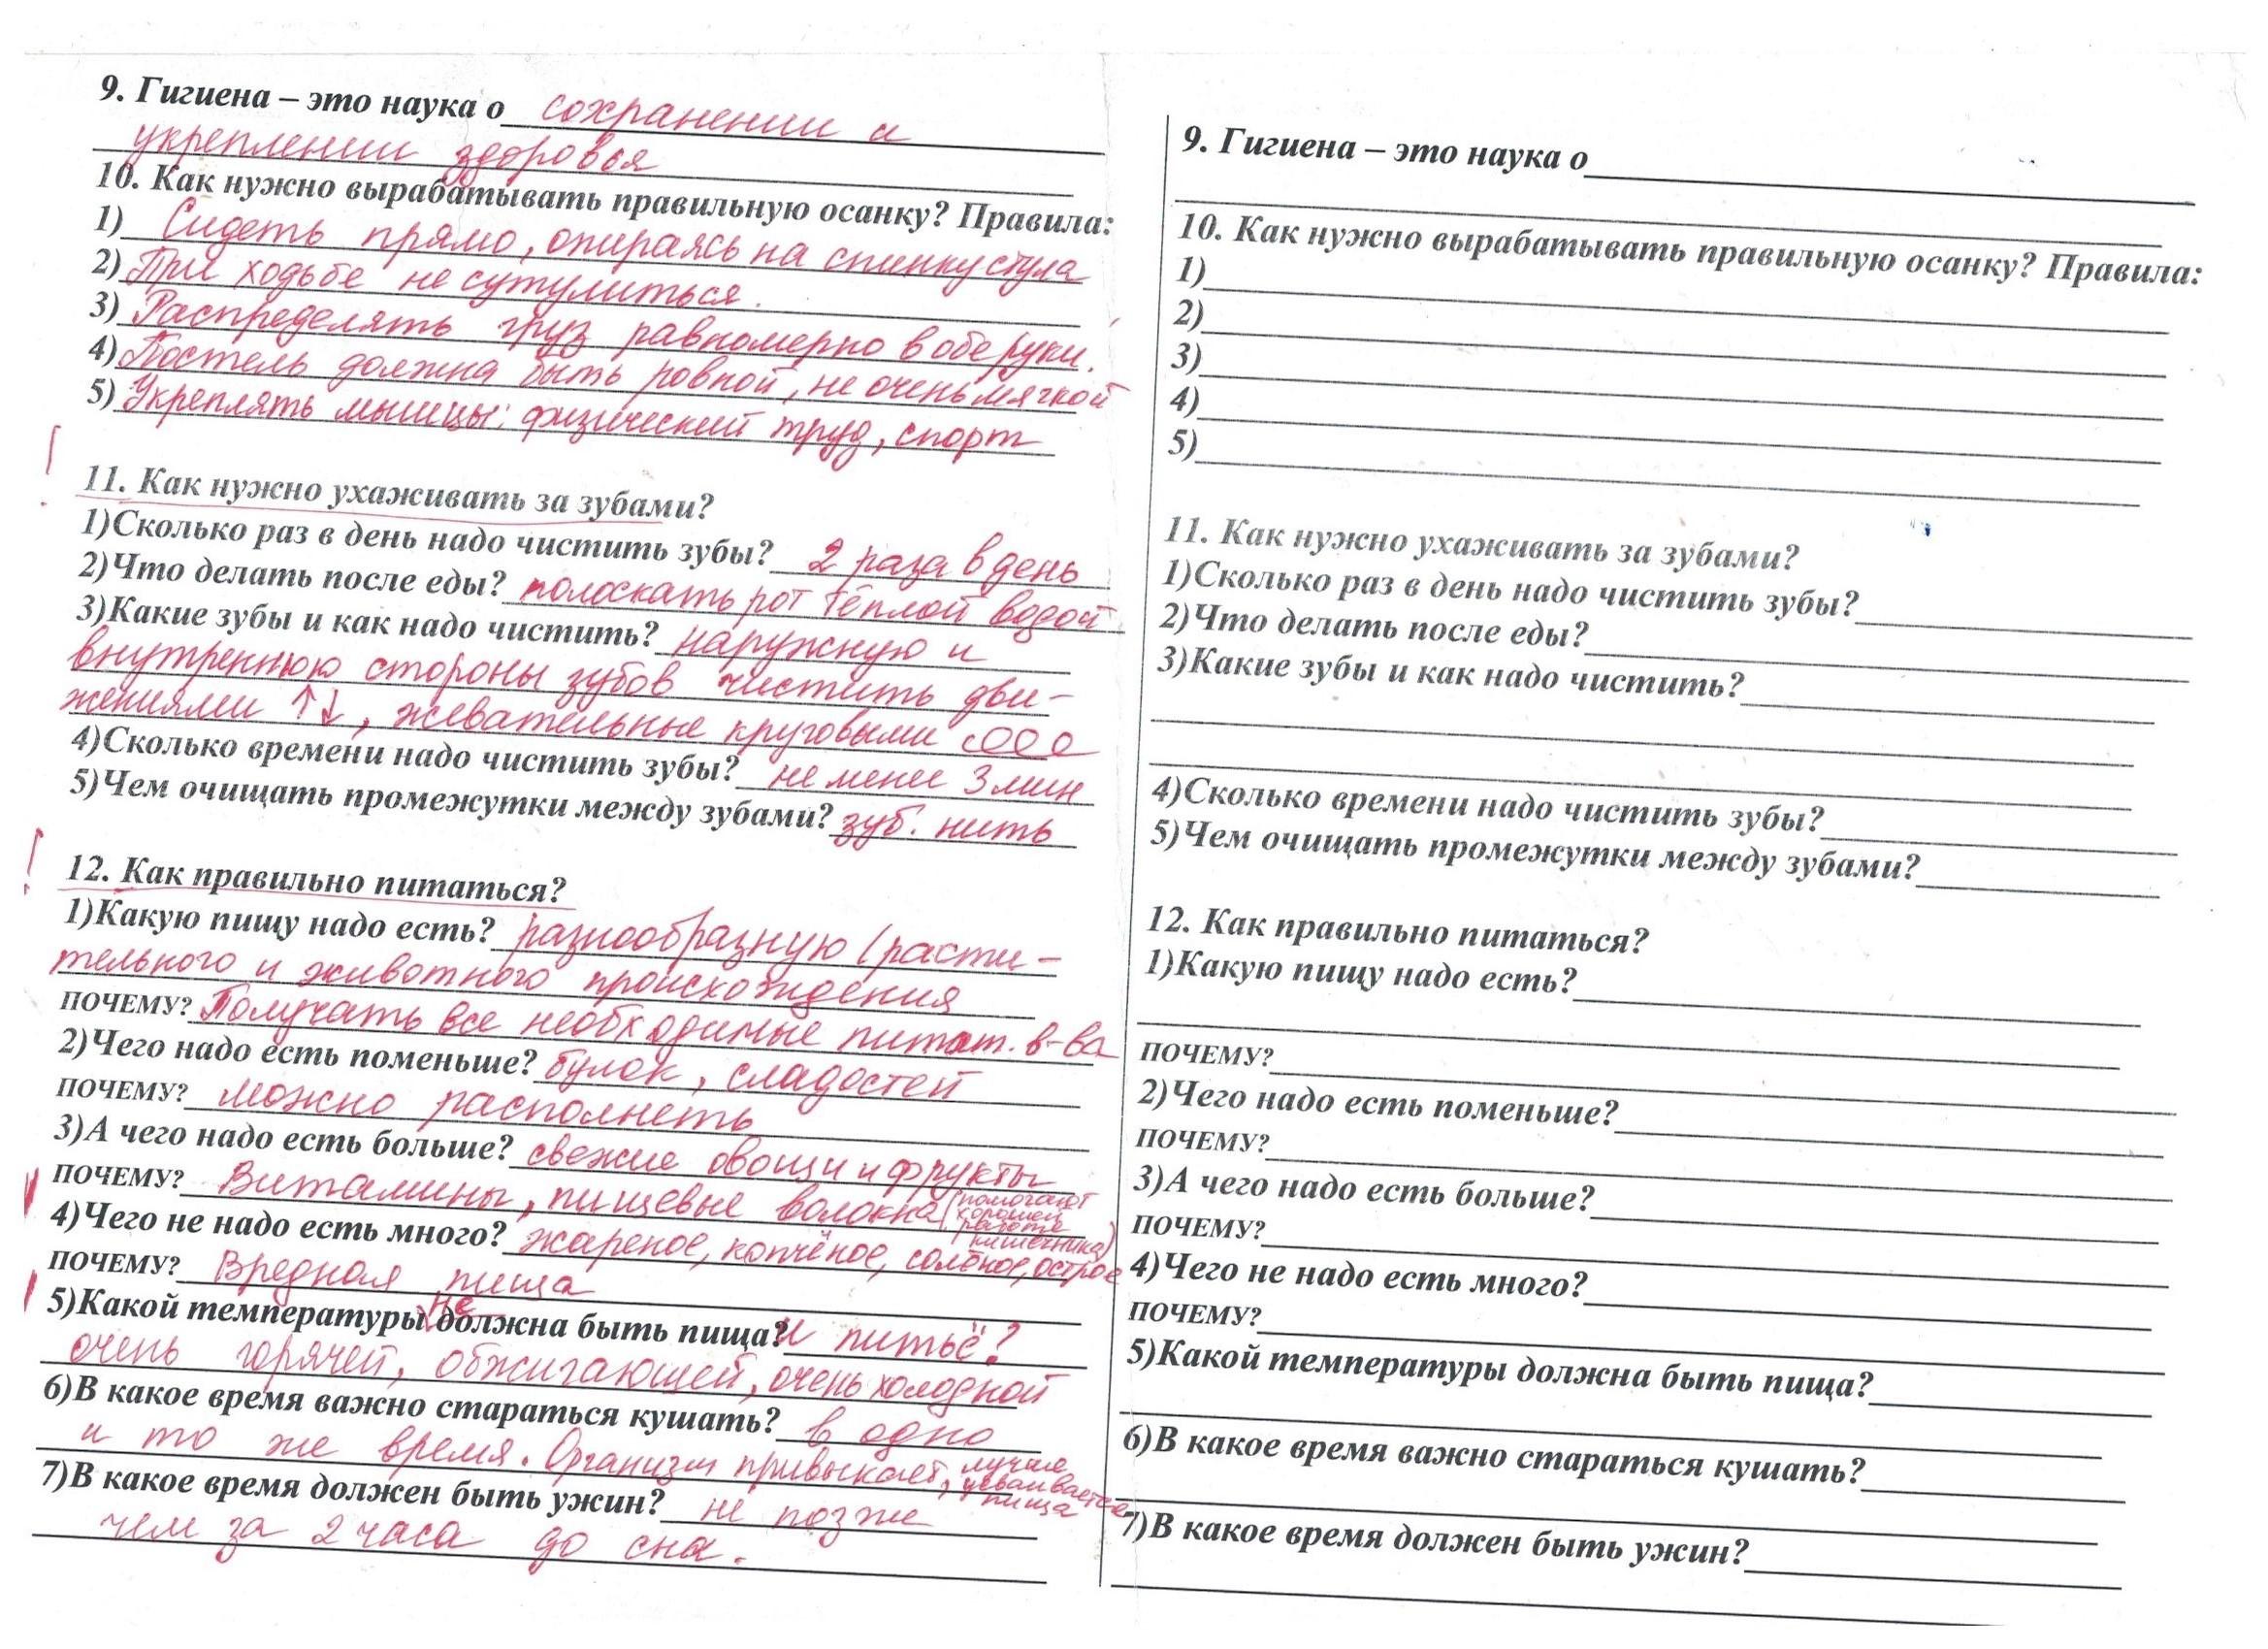 9. Гигиена – это наука о сохранении и
укреплении здоровья
10. Как нужно вырабатывать правильную осанку? Правила:
1) Сидеть прямо, опираясь на спинку стула
2) При ходьбе не сутулиться.
3) Распределять груз равномерно в обе руки.
4) Постель должна быть ровной, не очень мягкой
5) Укреплять мышцы: физический труд, спорт
! 11. Как нужно ухаживать за зубами?
1)Сколько раз в день надо чистить зубы? 2 раза в день
2)Что делать после еды? полоскать рот тёплой водой
3)Какие зубы и как надо чистить? наружную и
внутреннюю стороны зубов чистить дви-
жениями ↑↓, жевательные круговыми
4)Сколько времени надо чистить зубы? не менее 3 мин
5)Чем очищать промежутки между зубами? зуб. нить
! 12. Как правильно питаться?
1)Какую пищу надо есть? разнообразную (расти-
тельного и животного происхождения
ПОЧЕМУ? Получать все необходимые питат. в-ва
2)Чего надо есть поменьше? булок, сладостей
ПОЧЕМУ? можно располнеть
3)А чего надо есть больше? свежие овощи и фрукты
ПОЧЕМУ? Витамины, пищевые волокна (помогают
хорошей
работе
кишечника)
4)Чего не надо есть много? жареное, копчёное, солёное, острое
ПОЧЕМУ? Вредная пища
5)Какой температуры не должна быть пища? и питьё?
очень горячей, обжигающей, очень холодной
6)В какое время важно стараться кушать? в одно
и то же время. Организм привыкает, лучше
усваивается
пища
7)В какое время должен быть ужин? не позже
чем за 2 часа до сна.
9. Гигиена – это наука о
10. Как нужно вырабатывать правильную осанку? Правила:
1)
2)
3)
4)
5)
11. Как нужно ухаживать за зубами?
1)Сколько раз в день надо чистить зубы?
2)Что делать после еды?
3)Какие зубы и как надо чистить?
4)Сколько времени надо чистить зубы?
5)Чем очищать промежутки между зубами?
12. Как правильно питаться?
1)Какую пищу надо есть?
ПОЧЕМУ?
2)Чего надо есть поменьше?
ПОЧЕМУ?
3)А чего надо есть больше?
ПОЧЕМУ?
4)Чего не надо есть много?
ПОЧЕМУ?
5)Какой температуры должна быть пища?
6)В какое время важно стараться кушать?
7)В какое время должен быть ужин?